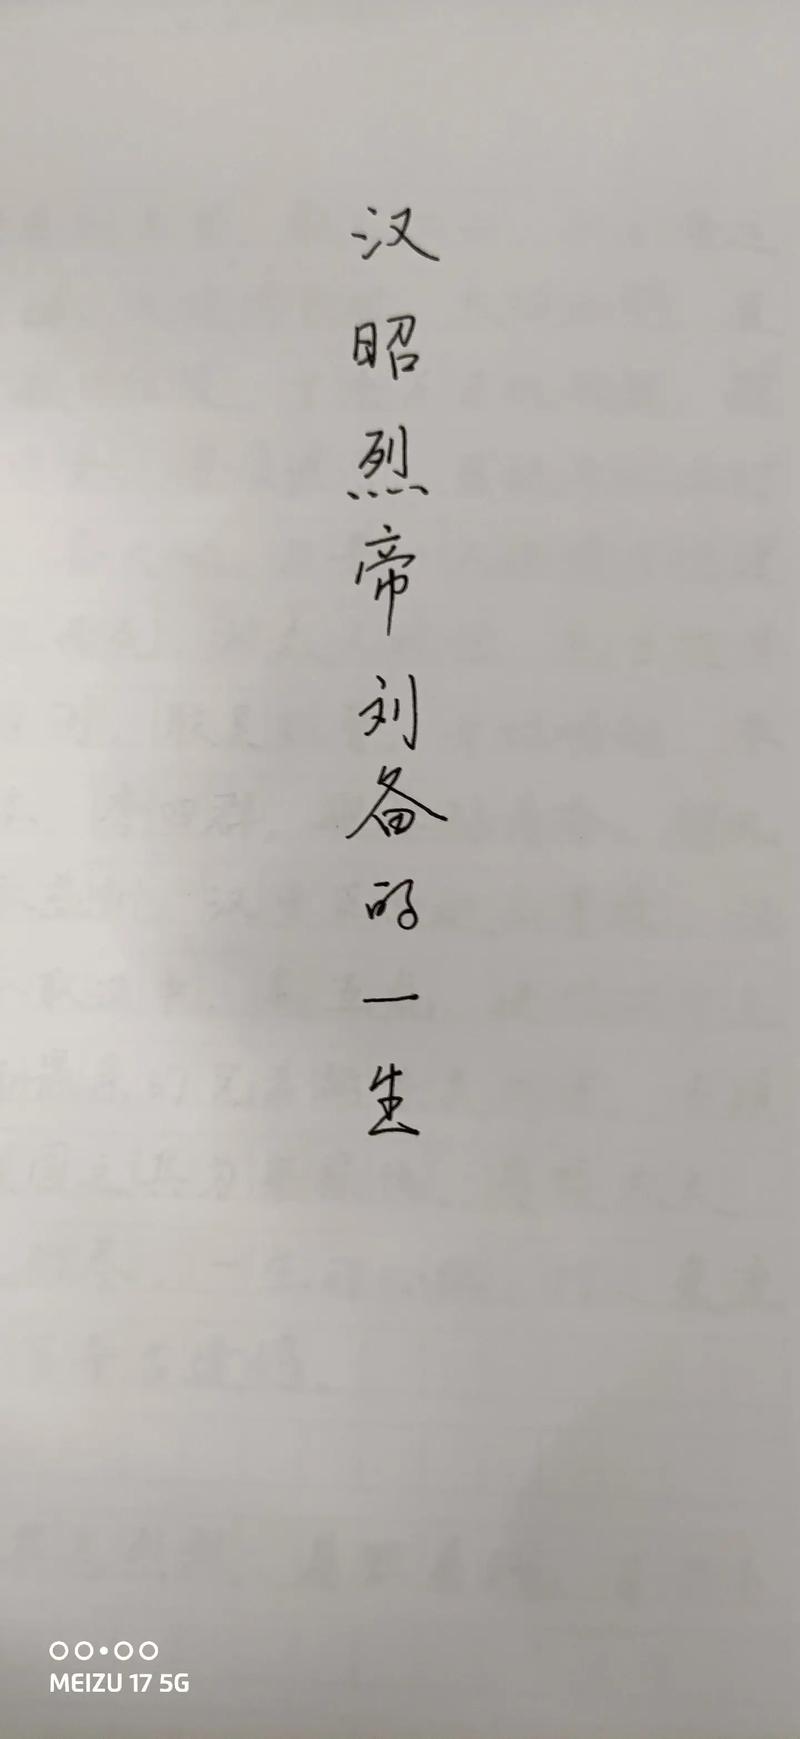 汉昭烈帝刘备的一生
MEIZU 17 5G